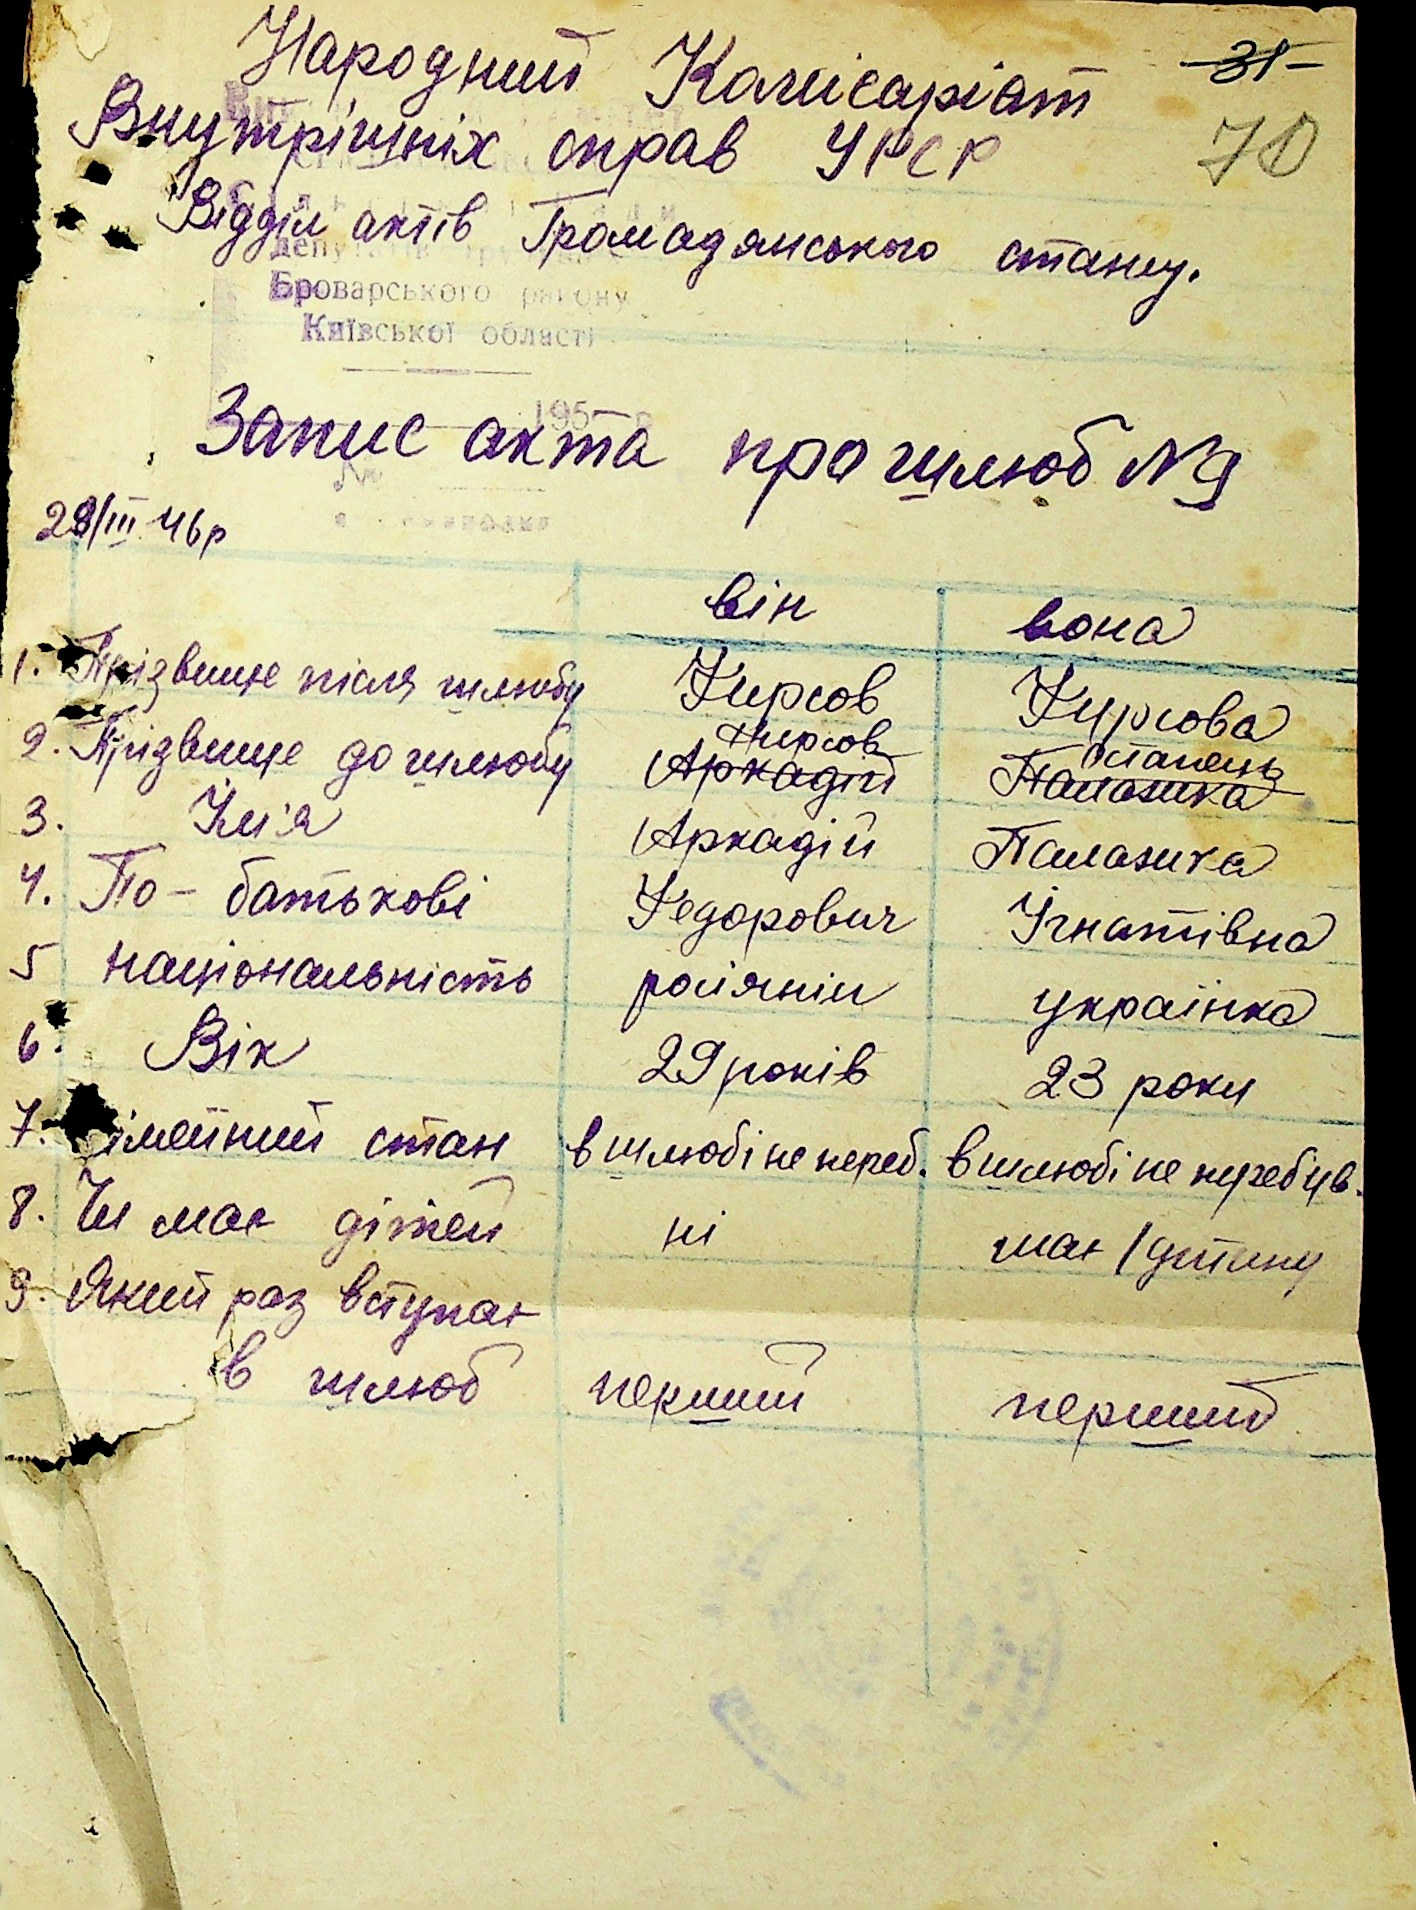 31
70
Народний Комісаріат
Внутрішніх справ УРСР
Відділ актів Громадянського стану.
Броварського району
Київської області
195 р
Запис акта про шлюб № 9
28/III 46р
він вона
1. Прізвище після шлюбу Фирсов Фирсова
2. Прізвище до шлюбу Фирсов Остапець
Аркадій Палажка
3. Ім'я Аркадій Палажка
4. По-батькові Федорович Ігнатівна
5 національність росіянін українка
6. Вік 29 років 23 роки
7. сімейний стан в шлюбі не переб. в шлюбі не перебув.
8. Чи має дітей ні має 1 дитину
9. Який раз вступає
в шлюб перший перший